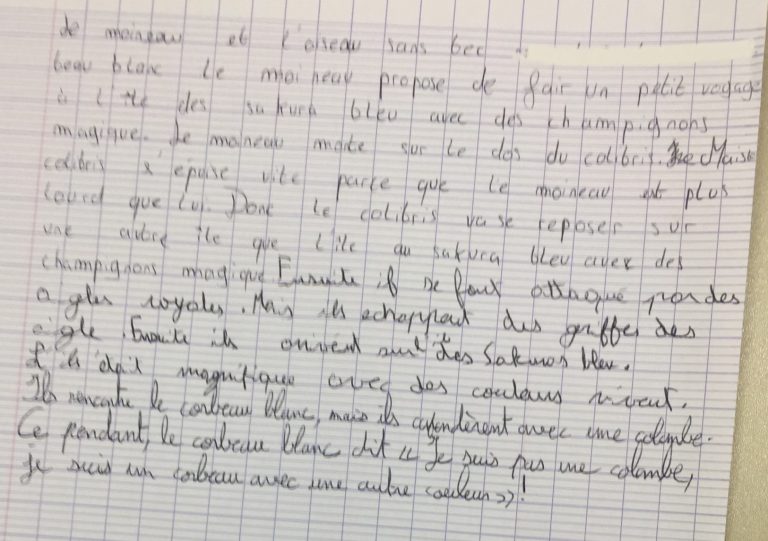 Le moineau et l'oiseau sans bec
beau blanc le moineau propose de fair un petit voyage
à l'île des sakura bleu avec des champignons
magique. Le moineau monte sur le dos du colibris. Mais le
colibris s'épuise vite parce que le moineau est plus
lourd que lui. Donc le colibris va se reposer sur
une autre île que l'île au sakura bleu avec des
champignons magique Ensuite il se font attaqué par des
aigles royales. Mais ils echappent des griffes des
aigle. Ensuite ils arrivent sur des Sakuras bleu.
L'île était magnifique avec des couleurs vivent.
Ils rencontre le corbeau blanc, mais ils avec une colombe.
Ce pendant, le corbeau blanc dit « Je suis pas une colombe,
je suis un corbeau avec une autre couleur » !